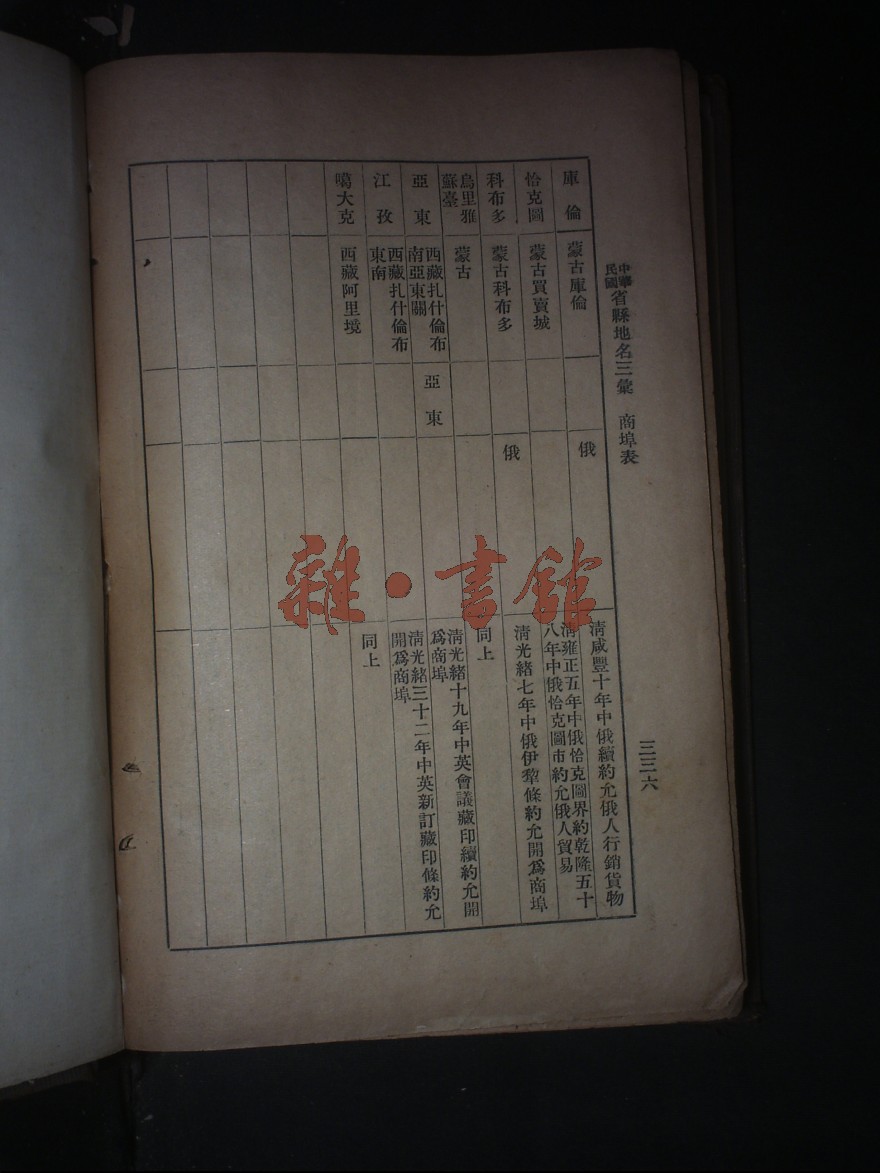 中華民國省縣地名三彙 商埠表
三三六
庫倫
蒙古庫倫
俄
清咸豐十年中俄續約允俄人行銷貨物
恰克圖
蒙古買賣城
清雍正五年中俄恰克圖界約乾隆五十
八年中俄恰克圖市約允俄人貿易
科布多
蒙古科布多
俄
清光緒七年中俄伊犂條約允開爲商埠
烏里雅
蘇臺
蒙古
同上
亞東
西藏扎什倫布
南亞東關
亞東
清光緒十九年中英會議藏印續約允開
爲商埠
江孜
西藏扎什倫布
東南
清光緒三十二年中英新訂藏印條約允
開爲商埠
噶大克
西藏阿里境
同上
雜·書館